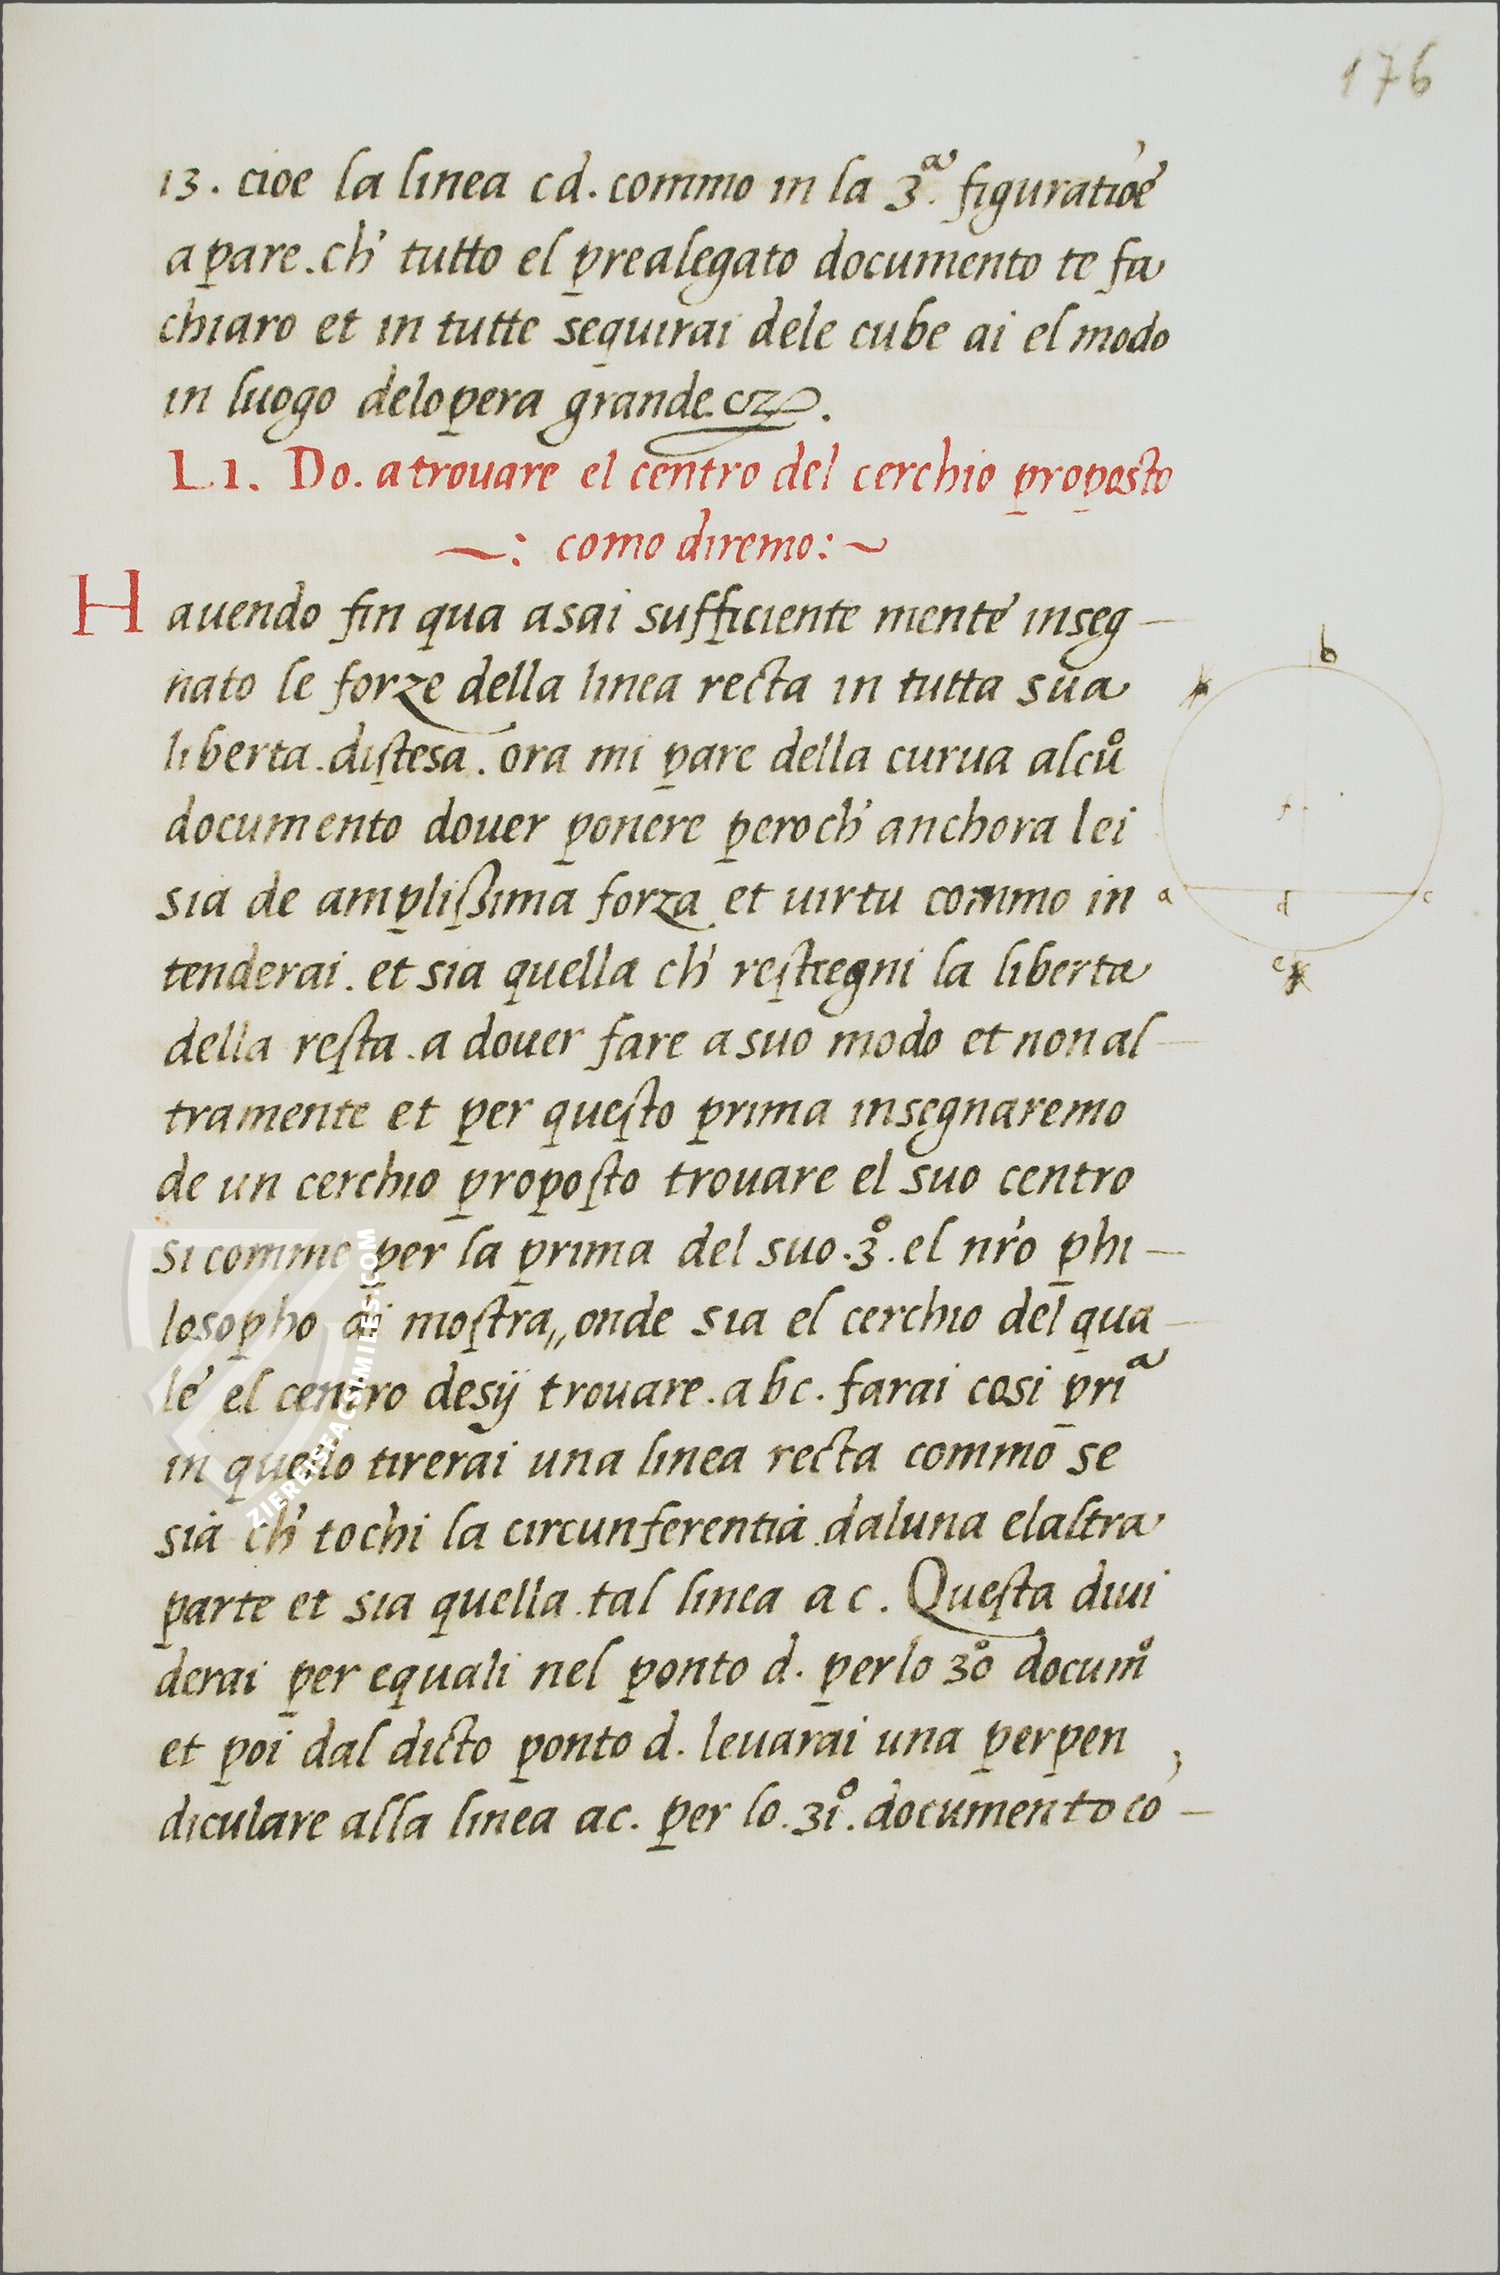 176
13. cioe la linea cd. commo in la 3.ª figuratiõe
apare. ch' tutto el prealegato documento te fa
chiaro et in tutte sequirai dele cube ai el modo
in luogo delopera grande
LI. Do. a trouare el centro del cerchio proposto
~: como diremo: ~
Hauendo fin qua asai sufficiente mente inseg-
nato le forze della linea recta in tutta sua
liberta. distesa. ora mi pare della curua alcu°
documento douer ponere peroch' anchora lei
sia de amplißima forza et uirtu commo in
tenderai. et sia quella ch' restregni la liberta
della resta. a douer fare a suo modo et non al-
tramente et per questo prima insegnaremo
de un cerchio proposto trouare el suo centro
si comme per la prima del suo .3°. el nr'o phi-
losopho ai mostra,, onde sia el cerchio del qua-
le' el centro desÿ trouare. abc. farai cosi priª
in quello tirerai una linea recta commo se
sia ch' tochi la circunferentia daluna elaltra
parte et sia quella tal linea ac. Questa diui
derai per equali nel ponto d. perlo 30 docum°
et poi dal dicto ponto d. leuarai una perpen
diculare alla linea ac. per lo .31°. documento co-
b
f
a d c
e
ZIEREISFACSIMILES.COM